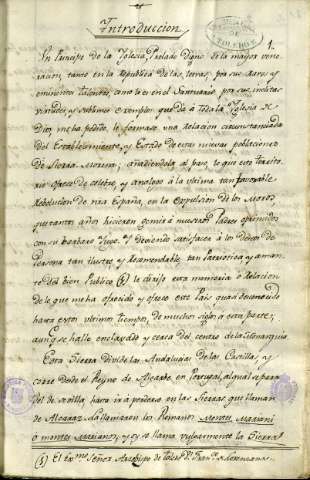 Introduccion
1.
Un Principe de la Yglesia, Prelado digno de la mayor vene-
racion, tanto en la Republica de las letras, por sus raros y
eminentes talentos, como lo es en el Santuario por sus
virtudes, y sublime exemplo que da à toda la Yglesia de
Dios, me ha pedido, le formase una relacion circunstanciada
del Establecimiento, y Estado de estas nuevas poblaciones
de Sierra Morena; añadiendole al paso, lo que este territo-
rio ofrece de celebre, y analogo à la ultima tan favorable
Rebolucion de nra España, en la expulsion de los Moros,
que tantos años hicieron gemir à nuestros Padres oprimidos
con su barbaro Yugo. Y deviendo satisfacer à los deseos de
Persona tan ilustre y Recomendable, tan Patriotica y aman-
te del bien Publico (1) le dirijo esta memoria ò Relacion
de lo que me ha ofrecido y ofrece este Pais, quasi desconocido
hasta estos ultimos tiempos, de muchos siglos à esta parte;
aunq se halla enclavado y cerca del centro de la Monarquia.
Esta Sierra divide las Andalucias de las Castillas, y
corre desde el Reyno de Algarbe, en Portugal, al qual separa
del de Sevilla hasta ir à perderse en las Sierras que llaman
de Alcaraz. La llamaron los Romanos Montes Mariani
ò montes Marianos, y oy se llama vulgarmente la Sierra
(1) El Exmo Señor Arzobispo de Toledo Dn. Franco. Lorenzana.